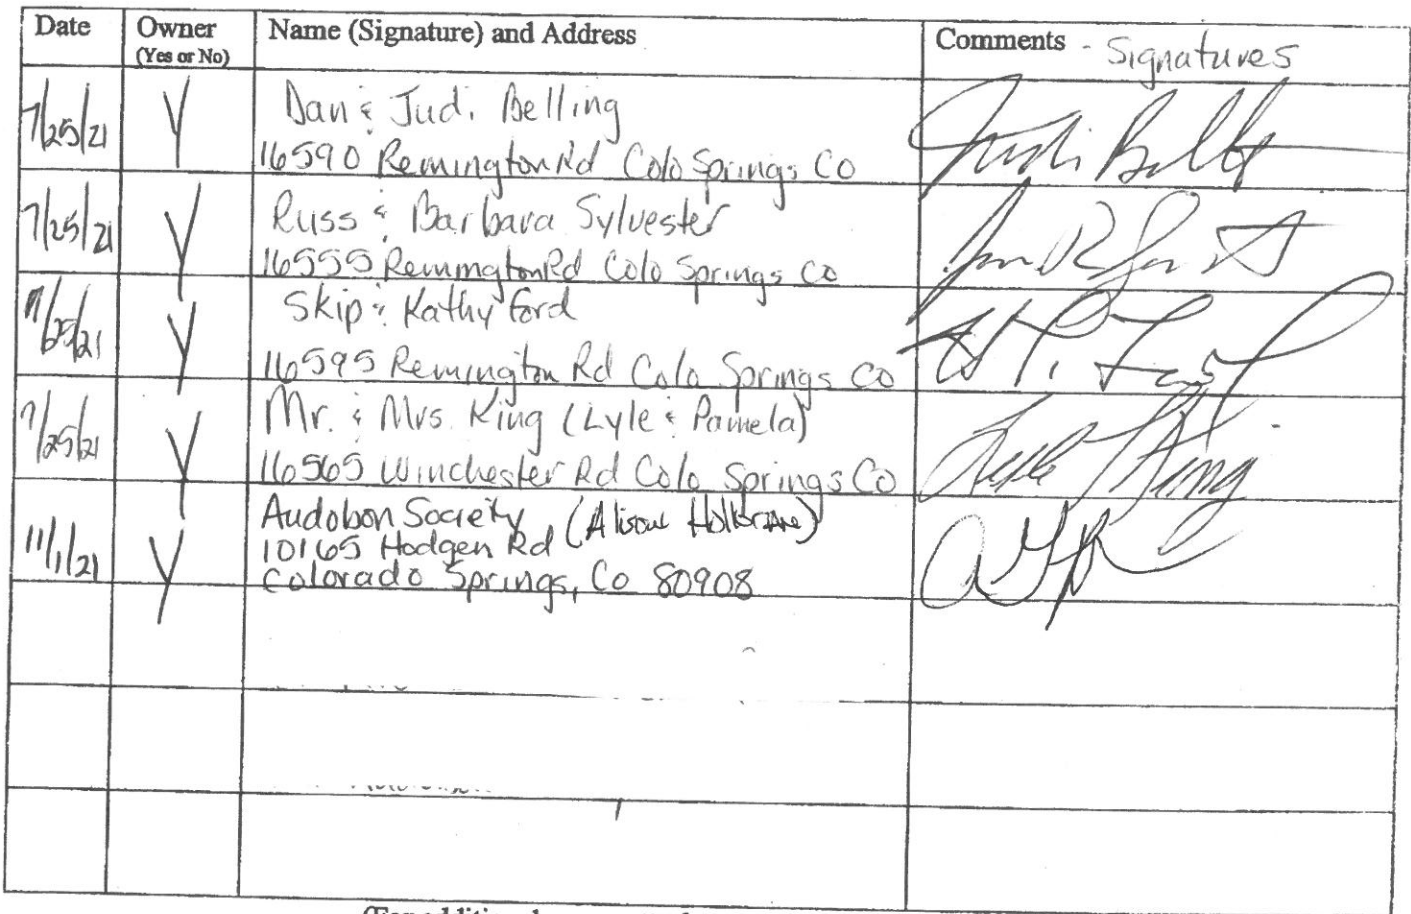 Date Owner Name (Signature) and Address Comments - Signatures
(Yes or No)
7/25/21 Y Dan & Judi Belling Judi Belling
16590 Remington Rd Colo Springs Co
7/25/21 Y Russ & Barbara Sylvester
16555 Remington Rd Colo Springs Co
7/25/21 Y Skip & Kathy Ford
16595 Remington Rd Colo Springs Co
7/25/21 Y Mr. & Mrs. King (Lyle & Pamela) Lyle King
16565 Winchester Rd Colo Springs Co
11/1/21 Y Audobon Society (Alison
10165 Hodgen Rd
Colorado Springs, Co 80908